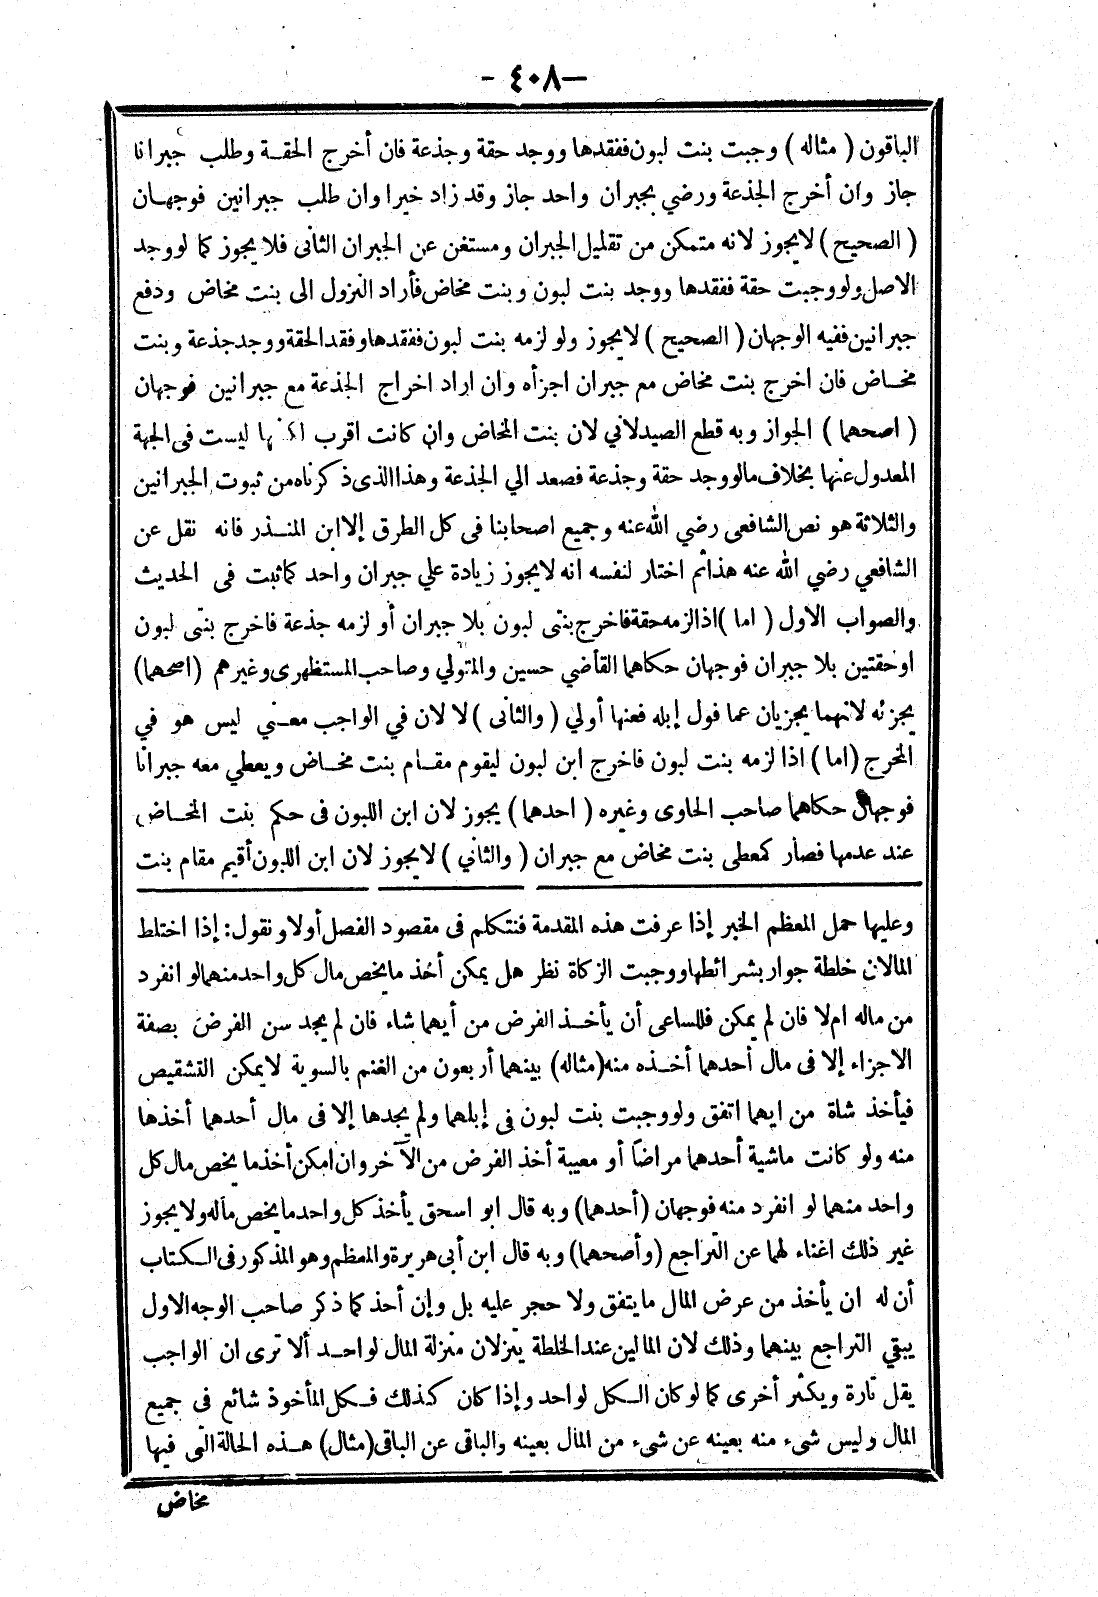 — ٤٠٨ —
الباقون ( مثاله ) وجبت بنت لبون ففقدها ووجد حقة وجذعة فان أخرج الحقة وطلب جبرانا
جاز وان أخرج الجذعة ورضي بجبران واحد جاز وقد زاد خيرا وان طلب جبرانين فوجهان
( الصحيح ) لا يجوز لانه متمكن من تقليل الجبران ومستغن عن الجبران الثانى فلا يجوز كما لو وجد
الاصل ولو وجبت حقة ففقدها ووجد بنت لبون وبنت مخاض فأراد النزول الى بنت مخاض ودفع
جبرانين ففيه الوجهان ( الصحيح ) لا يجوز ولو لزمه بنت لبون ففقدها وفقد الحقة ووجد جذعة وبنت
مخاض فان اخرج بنت مخاض مع جبران اجزأه وان اراد اخراج الجذعة مع جبرانين فوجهان
( اصحهما ) الجواز وبه قطع الصيدلاني لان بنت المخاض وان كانت اقرب لكنها ليست فى الجهة
المعدول عنها بخلاف مالو وجد حقة وجذعة فصعد الي الجذعة وهذا الذى ذكرناه من ثبوت الجبرانين
والثلاثة هو نص الشافعى رضي الله عنه وجميع اصحابنا فى كل الطرق إلا ابن المنذر فانه نقل عن
الشافعي رضي الله عنه هذا ثم اختار لنفسه انه لا يجوز زيادة علي جبران واحد كما ثبت فى الحديث
والصواب الاول ( اما ) اذا لزمه حقة فاخرج بنتى لبون بلا جبران أو لزمه جذعة فاخرج بنتى لبون
او حقتين بلا جبران فوجهان حكاهما القاضي حسين والمتولي وصاحب المستظهرى وغيرهم (اصحهما)
يجزئه لانهما يجزيان عما فول إبله فعنها أولي ( والثانى ) لا لان في الواجب معني ليس هو في
المخرج (اما) اذا لزمه بنت لبون فاخرج ابن لبون ليقوم مقام بنت مخاض ويعطي معه جبرانا
فوجهان حكاهما صاحب الحاوى وغيره ( احدهما ) يجوز لان ابن اللبون فى حكم بنت المخاض
عند عدمها فصار كمعطى بنت مخاض مع جبران ( والثاني ) لا يجوز لان ابن اللبون أقيم مقام بنت
وعليها حمل المعظم الخبر إذا عرفت هذه المقدمة فنتكلم فى مقصود الفصل أولا ونقول : إذا اختلط
المالان خلطة جوار بشرائطها ووجبت الزكاة نظر هل يمكن أخذ ما يخص مال كل واحد منهما لو انفرد
من ماله ام لا فان لم يمكن فللساعى أن يأخذ الفرض من أيهما شاء فان لم يجد سن الفرض بصفة
الاجزاء إلا فى مال أحدهما أخذه منه (مثاله) بينهما أربعون من الغنم بالسوية لا يمكن التشقيص
فيأخذ شاة من ايهما اتفق ولو وجبت بنت لبون فى إبلهما ولم يجدها إلا فى مال أحدهما أخذها
منه ولو كانت ماشية أحدهما مراضا أو معيبة أخذ الفرض من الآخر وان امكن أخذ ما يخص مال كل
واحد منهما لو انفرد منه فوجهان (أحدهما) وبه قال ابو اسحق يأخذ كل واحد ما يخص ماله ولا يجوز
غير ذلك اغناء لهما عن التراجع (وأصحهما) وبه قال ابن أبى هريرة والمعظم وهو المذكور فى الكتاب
أن له ان يأخذ من عرض المال ما يتفق ولا حجر عليه بل وإن أحذ كما ذكر صاحب الوجه الاول
يبقي التراجع بينهما وذلك لان المالين عند الخلطة يتزلان منزلة المال لواحد ألا ترى ان الواجب
يقل تارة ويكثر أخرى كما لو كان الكل لواحد وإذا كان كذلك فكل المأخوذ شائع فى جميع
المال وليس شىء منه بعينه عن شىء من المال بعينه والباقى عن الباقى (مثال) هذه الحالة التى فيها
مخاض